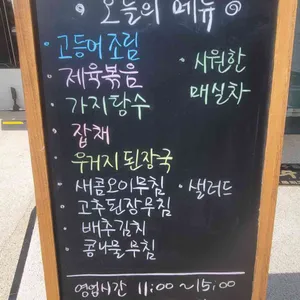 오늘의 메뉴
고등어조림
제육볶음
가지탕수
잡채
우거지된장국
새콤오이무침
고추된장무침
배추김치
콩나물무침
시원한
매실차
샐러드
영업시간 11:00~15:00